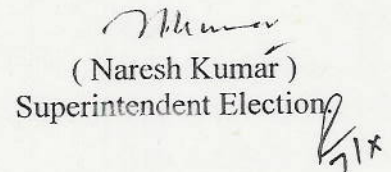 N.Kumar
( Naresh Kumar )
Superintendent Election
7/x